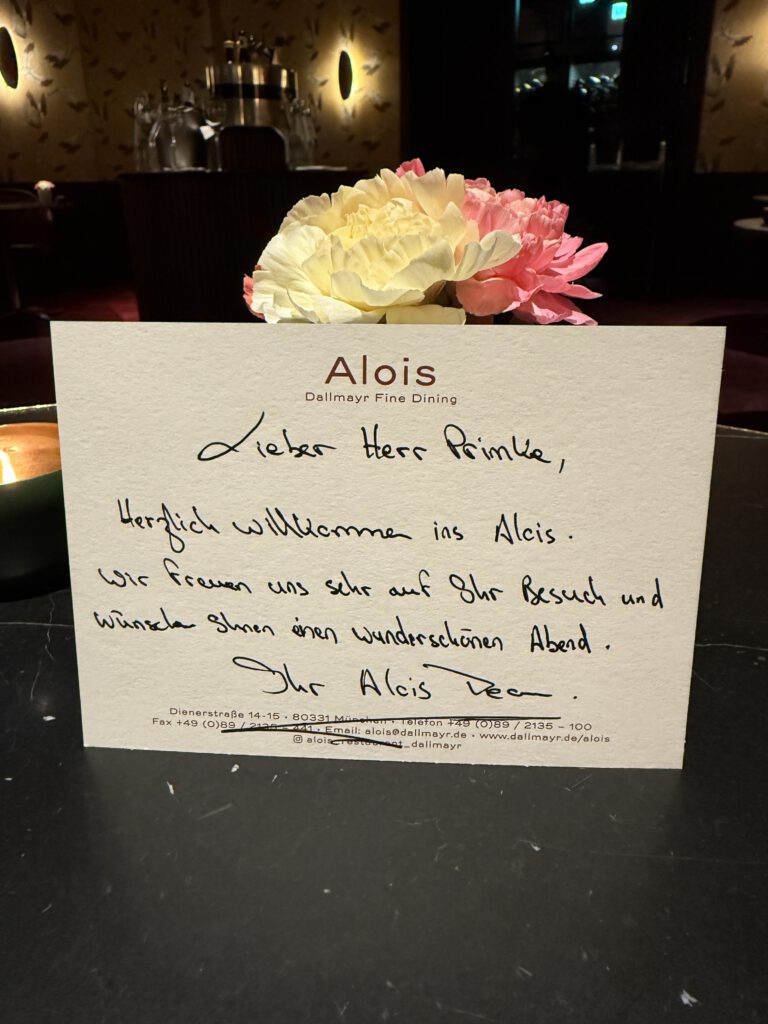 Alois
Dallmayr Fine Dining
Lieber Herr Primke,
Herzlich willkommen ins Alois.
wir freuen uns sehr auf Ihr Besuch und
wünschen Ihnen einen wunderschönen Abend.
Ihr Alois Team.
Dienerstraße 14-15 • 80331 München • Telefon +49 (0)89 / 2135 – 100
Fax +49 (0)89 / 2135 – 441 • Email: alois@dallmayr.de • www.dallmayr.de/alois
alois_restaurant_dallmayr